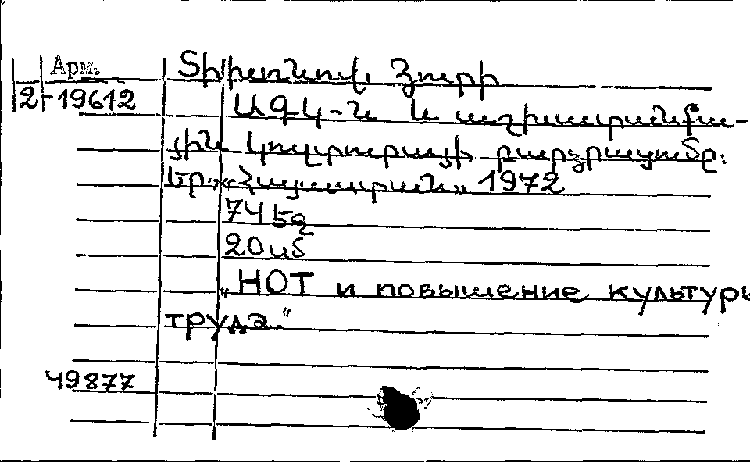 Арм.
2-19612
Տիխոնով Յուրի
ԱԳԿ-ն և աշխատանքա-
յին կուլտուրայի բարձրացումը.
Եր. «Հայաստան» 1972
74 էջ
20 սմ
„НОТ и повышение культуры
труда."
49877